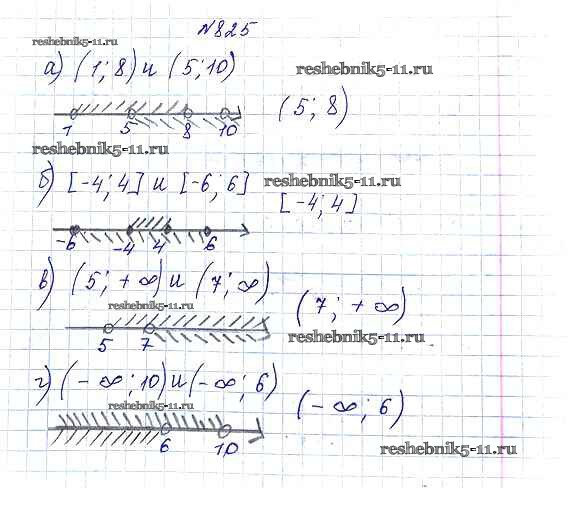 №825
reshebnik5-11.ru
а) (1; 8) и (5; 10)
reshebnik5-11.ru
1 5 8 10
(5; 8)
reshebnik5-11.ru
б) [-4; 4] и [-6; 6]
reshebnik5-11.ru
[-4; 4]
-6 -4 4 6
в) (5; +∞) и (7; ∞)
reshebnik5-11.ru
(7; +∞)
5 7
reshebnik5-11.ru
г) (-∞; 10) и (-∞; 6)
reshebnik5-11.ru
(-∞; 6)
6 10
reshebnik5-11.ru